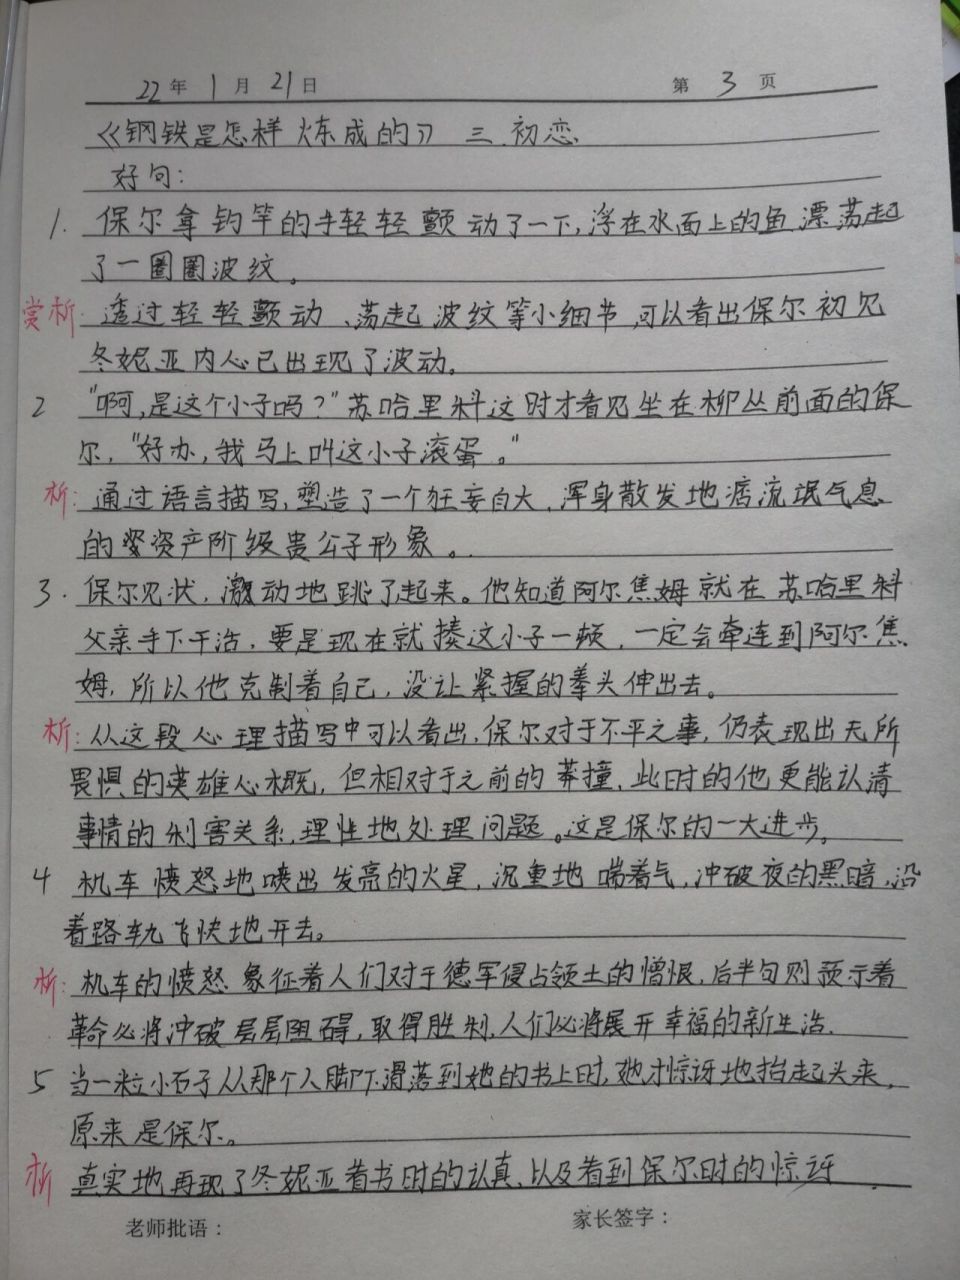 22年1月21日 第3页
《钢铁是怎样炼成的》 三.初恋
好句：
1. 保尔拿钓竿的手轻轻颤动了一下,浮在水面上的鱼漂荡起
了一圈圈波纹。
赏析 透过轻轻颤动、荡起波纹等小细节,可以看出保尔初见
冬妮亚内心已出现了波动。
2 "啊,是这个小子吗？"苏哈里科这时才看见坐在柳丛前面的保
尔,"好办,我马上叫这小子滚蛋。"
析: 通过语言描写,塑造了一个狂妄自大、浑身散发地痞流氓气息
的资产阶级贵公子形象。
3. 保尔见状,激动地跳了起来。他知道阿尔焦姆就在苏哈里科
父亲手下干活,要是现在就揍这小子一顿,一定会牵连到阿尔焦
姆,所以他克制着自己,没让紧握的拳头伸出去。
析: 从这段心理描写中可以看出,保尔对于不平之事,仍表现出无所
畏惧的英雄心概,但相对于之前的莽撞,此时的他更能认清
事情的利害关系,理性地处理问题。这是保尔的一大进步。
4 机车愤怒地喷出发亮的火星,沉重地喘着气,冲破夜的黑暗,沿
着路轨飞快地开去。
析: 机车的愤怒象征着人们对于德军侵占领土的憎恨,后半句则预示着
革命必将冲破层层阻碍,取得胜利,人们必将展开幸福的新生活.
5 当一粒小石子从那个人脚下滑落到她的书上时,她才惊讶地抬起头来,
原来是保尔。
析 真实地再现了冬妮亚看书时的认真、以及看到保尔时的惊讶.
老师批语： 家长签字：